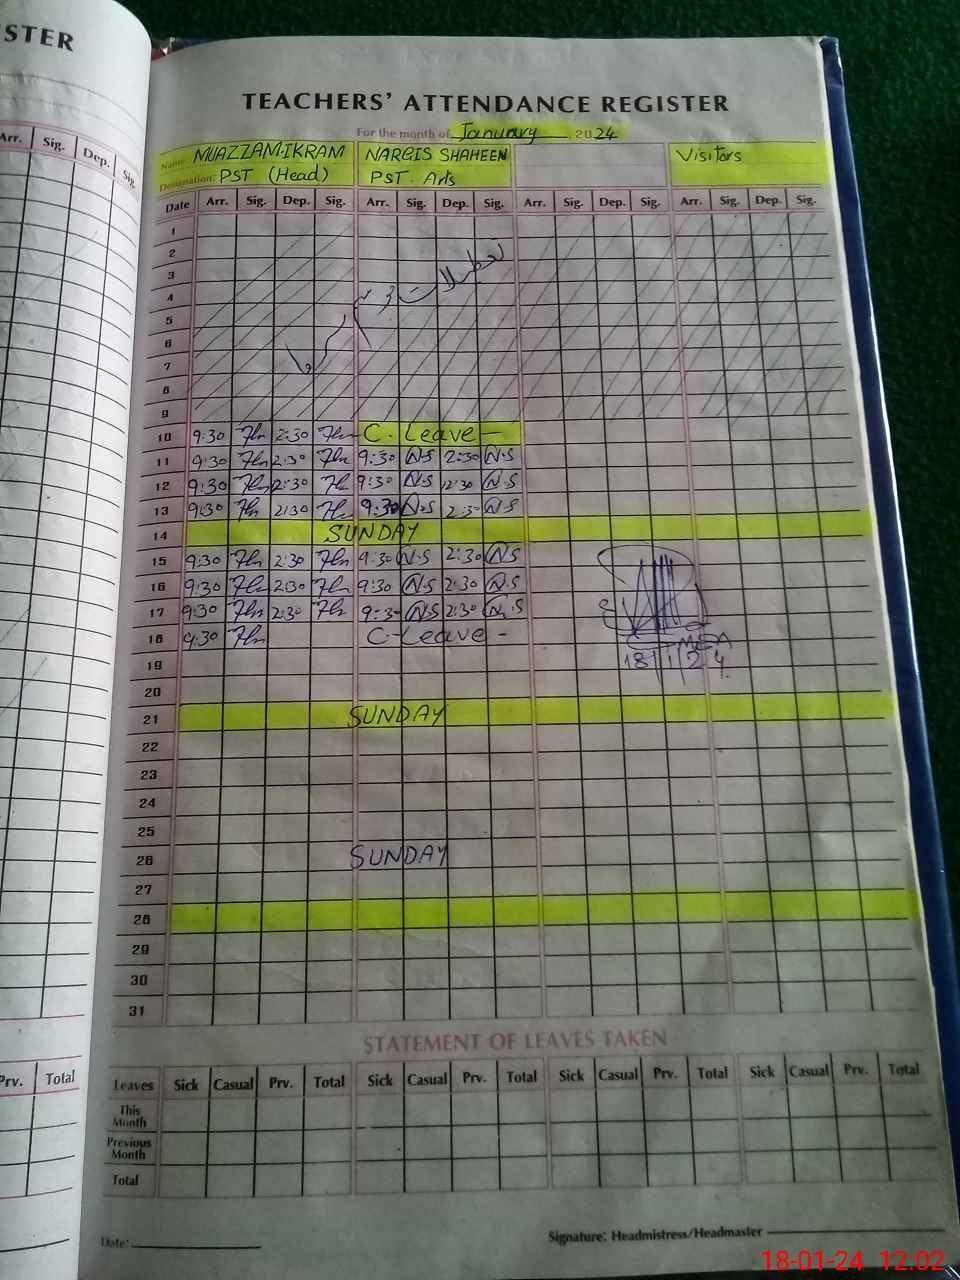 STER
TEACHERS' ATTENDANCE REGISTER
For the month of January, 2024
Name: MUAZZAM IKRAM NARGIS SHAHEEN Visitors
Designation: PST (Head) PST. Arts
Arr. Sig. Dep. Sig.
Date Arr. Sig. Dep. Sig. Arr. Sig. Dep. Sig. Arr. Sig. Dep. Sig. Arr. Sig. Dep. Sig.
1
2
3
4
5
6
7
8
9
10 9:30 2:30 C. Leave -
11 9:30 2:30 9:30 N.S 2:30 N.S
12 9:30 2:30 9:30 N.S 2:30 N.S
13 9:30 2:30 9:30 N.S 2:30 N.S
14 SUNDAY
15 9:30 2:30 9:30 N.S 2:30 N.S
16 9:30 2:30 9:30 N.S 2:30 N.S
17 9:30 2:30 9:30 N.S 2:30 N.S
18 9:30 C-Leave -
MEA
18/1/24.
19
20
21 SUNDAY
22
23
24
25
26 SUNDAY
27
28
29
30
31
STATEMENT OF LEAVES TAKEN
Prv. Total
Leaves Sick Casual Prv. Total Sick Casual Prv. Total Sick Casual Prv. Total Sick Casual Prv. Total
This Month
Previous Month
Total
Date: Signature: Headmistress/Headmaster
18-01-24 12:02